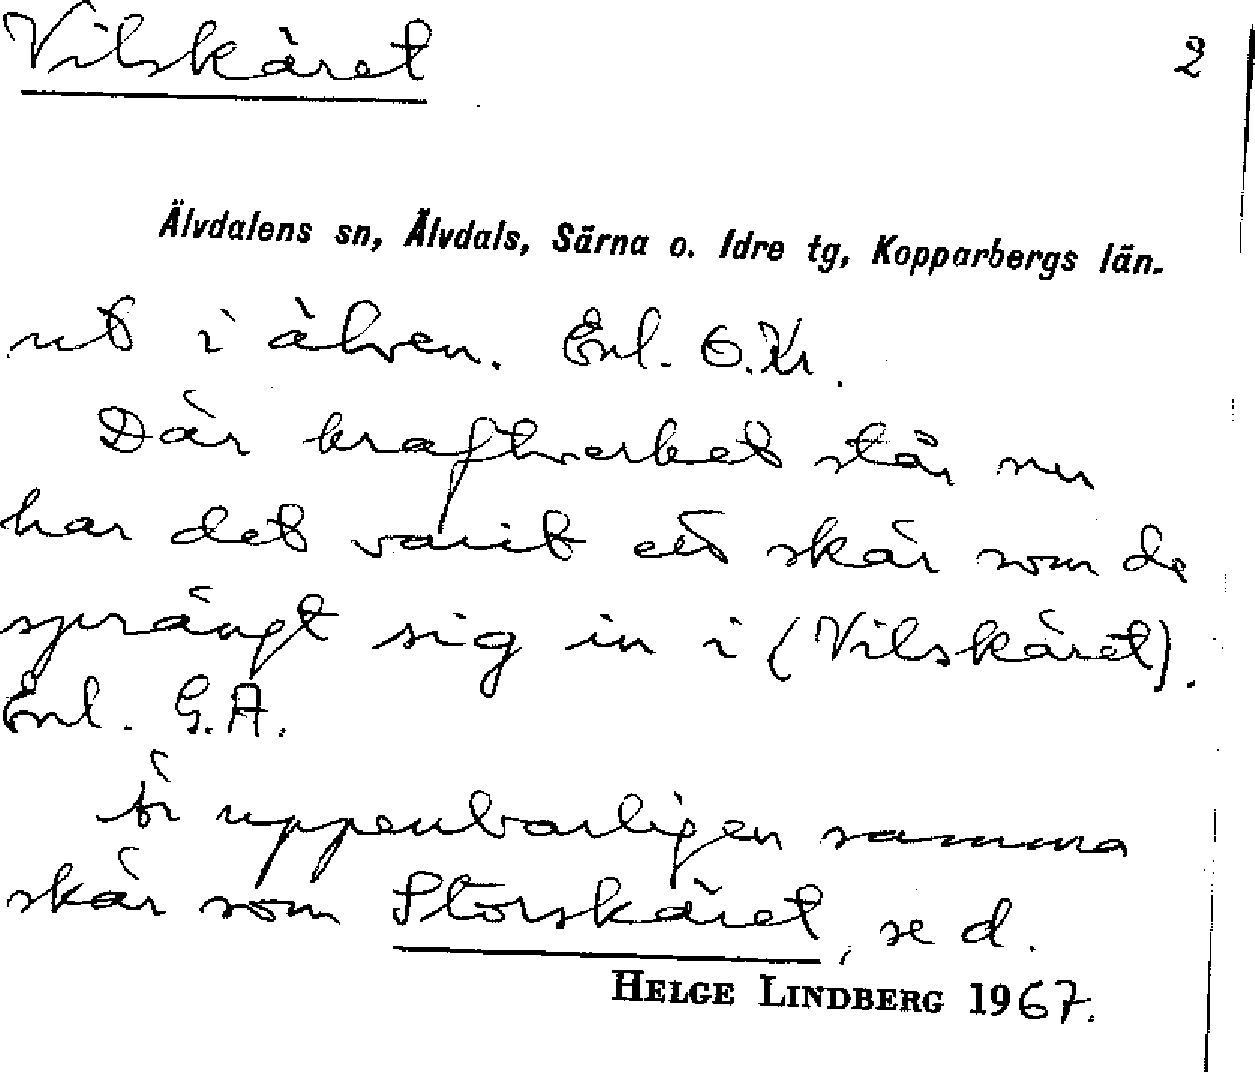 Vilskäret 2
Älvdalens sn, Älvdals, Särna o. Idre tg, Kopparbergs län.
ut i älven. Enl. O.Kr.
Där kraftverket står nu
har det varit ett skär som de
sprängt sig in i (Vilskäret).
Enl. G.A.
Är uppenbarligen samma
skär som Storskäret, se d.
HELGE LINDBERG 1967.